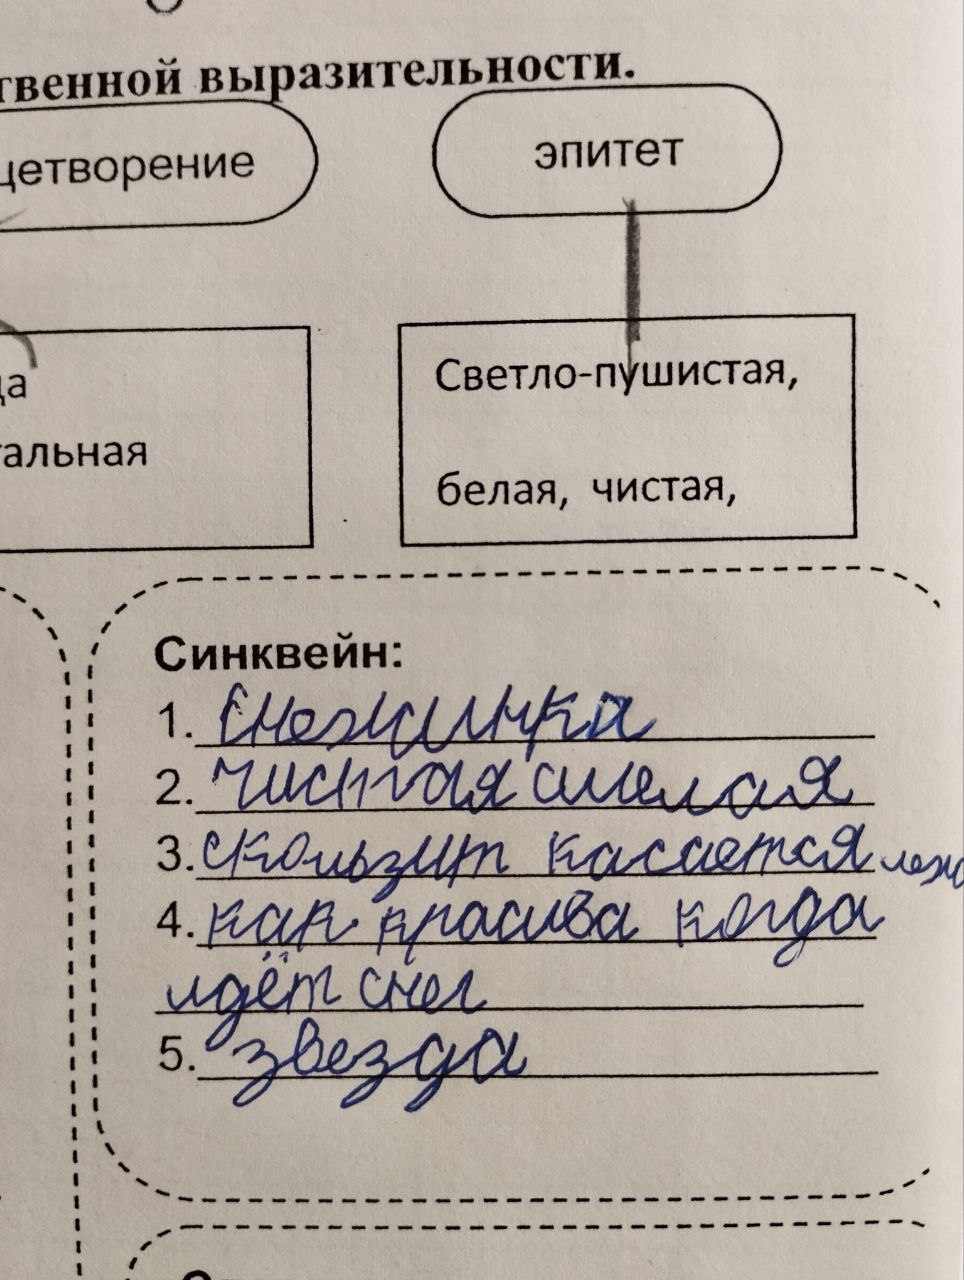 твенной выразительности.
цетворение
эпитет
да
тальная
Светло-пушистая,
белая, чистая,
Синквейн:
1. Снежинка
2. чистая смелая
3. скользит касается
4. как красива когда
идёт снег
5. звезда